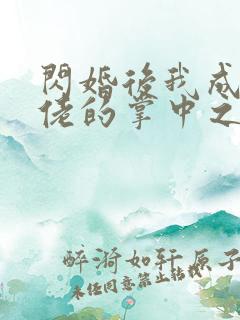 閃婚後我成
佬的掌中之
醉漪如轩原子
未经同意禁止转载